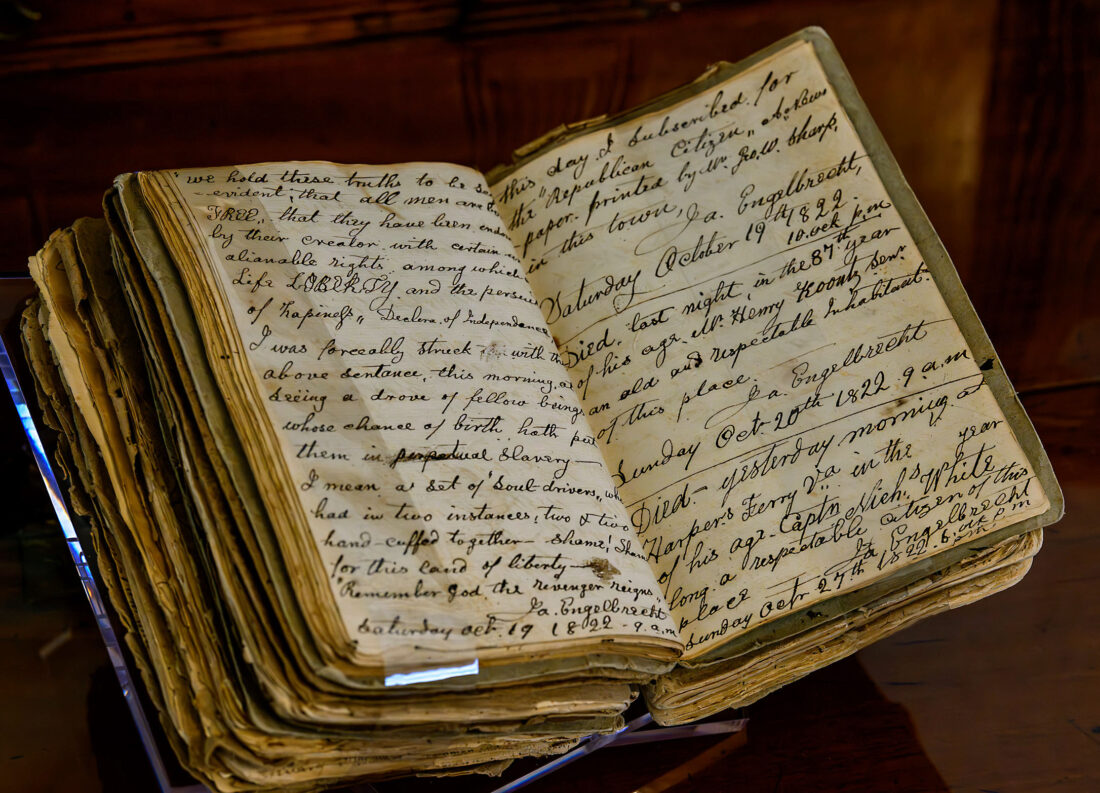 "we hold these truths to be se
- evident; that all men are
FREE, that they have been endo
by their creator with certain
alianable rights, among which
Life LIBERTY and the persui
of Hapiness" Declera. of Independance
I was forceably struck with th
above sentence, this morning, a
seeing a drove of fellow beings
whose chance of birth hath put
them in perpetual Slavery—
I mean a set of "Soul drivers", wh
had in two instances, two & two
hand-cuffed together— shame! Sham
for this land of liberty—
"Remember God the revenger reigns"
Ja. Engelbrecht
Saturday Oct. 19 1822 - 9 a.m
this day I Subscribed for
the "Republican Citizen" A News
paper printed by Mr Geo. W. Sharp,
in this town,
Ja. Engelbrecht,
Saturday October 19th 1822.
10. ock p.m
Died. last night, in the 87th year
of his age. Mr. Henry Koontz Senr.
an old and respectable Inhabitant
of this place.
Ja. Engelbrecht
Sunday Oct. 20th 1822 9 a.m
Died - yesterday morning at
Harper's Ferry Va. in the year
of his age. Captn Nichs. White
long a respectable Citizen of this
place
Ja Engelbrecht
Sunday Octr 27th 1822. 8. ock p.m